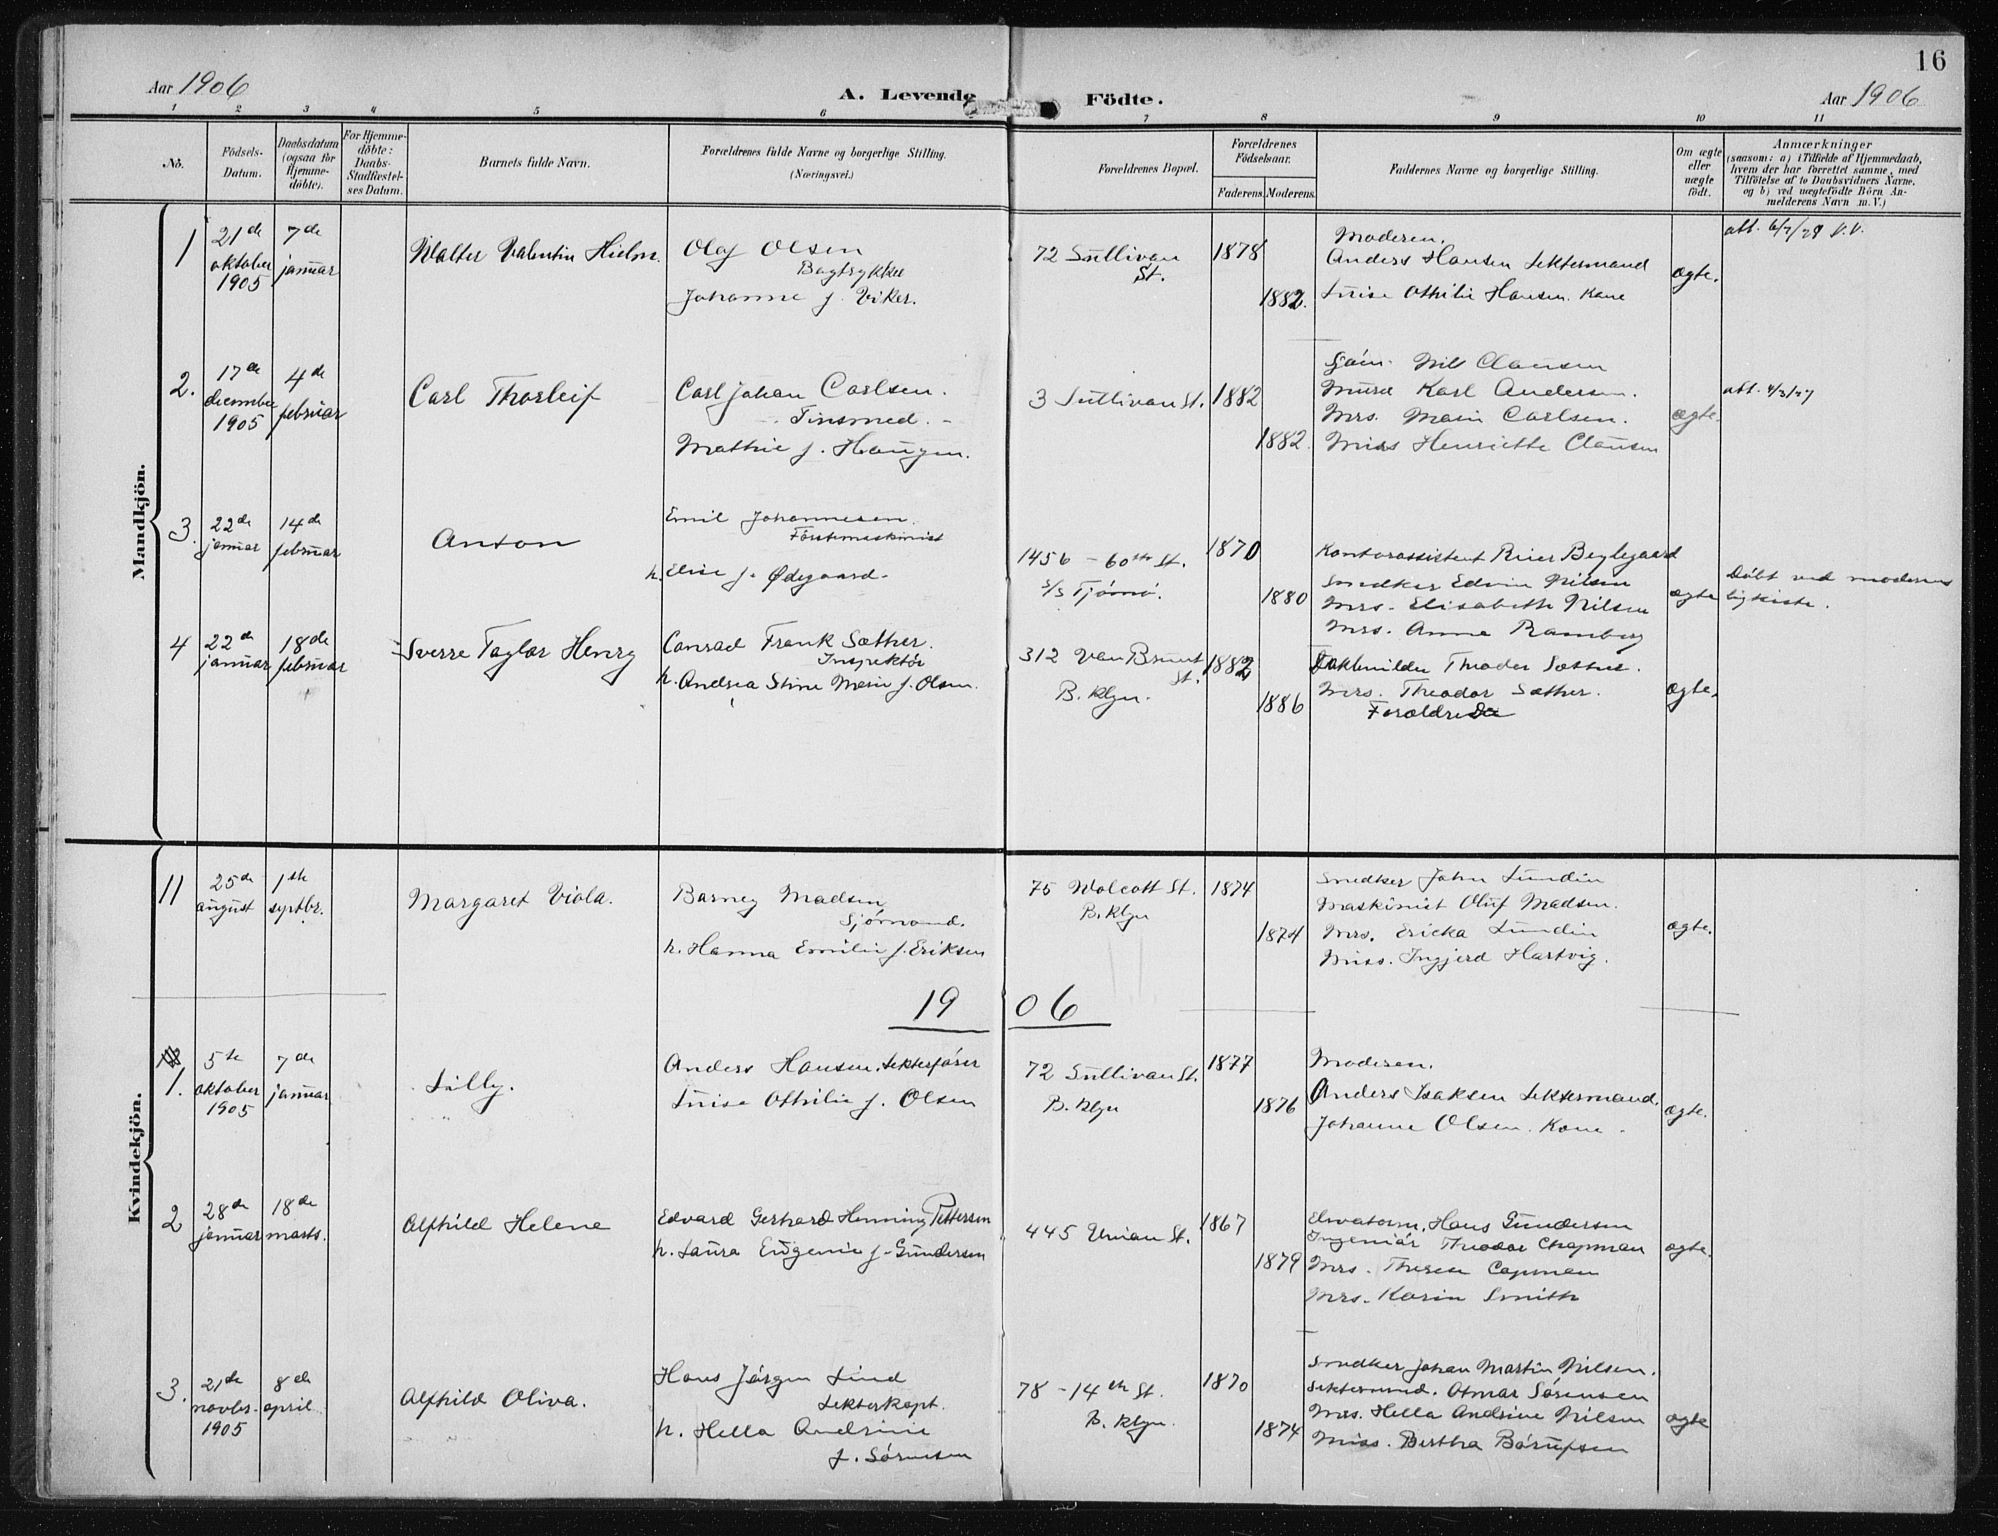 16
Aar 1906
A. Levende Födte.
Aar 1906
1 2 3 4 5 6 7 8 9 10 11
No.
Födsels-Datum.
Daabsdatum (ogsaa for Hjemme-döbte).
For Hjemme-döbte: Daabs-Stadfæstel-ses Datum.
Barnets fulde Navn.
Forældrenes fulde Navne og borgerlige Stilling. (Næringsvei.)
Forældrenes Bopæl.
Forældrenes Födselsaar.
Faderens. Moderens.
Faddernes Navne og borgerlige Stilling.
Om ægte eller uægte födt.
Anmærkninger
(saasom: a) i Tilfælde af Hjemmedaab, hvem der har forrettet samme, med Tilföielse af to Daabsvidners Navne, og b) ved uægtefödte Börn An-melderens Navn m. V.)
Mandkjön.
1
21de oktober 1905
7de januar
Walter Valentin Hielm.
Olaf Olsen
Bogtrykker
Johanne f. Viker.
72 Sullivan St.
1878
1882.
Moderen.
Anders Hansen Lektermand
Luise Othilie Hansen. Kone
ægte.
att. 6/7/29 V.V.
2.
17de december 1905
4de februar
Carl Thorleif
Carl Johan Carlsen.
- Tinsmed. -
Mathie f. Haugen.
3 Sullivan St.
1882
1882.
Nils Clausen
Murer Karl Andersen.
Mrs. Marie Carlsen.
Miss Henriette Clausen
ægte.
3.
22de januar
14de februar
Anton
Emil Johannesen.
Förstemaskinist
h. Elise f. Ødegaard.
1456 - 60th St.
S/S Tjømø.
1870
1880
Kontorassistent Reier Beylegaard
Snedker Edvin Nilsen
Mrs. Elisabeth Nilsen
Mrs. Anna Ramberg
ægte
Döbt ved moderens ligkiste.
4
22de januar
18de februar
Sverre Taylor Henry
Conrad Frank Sæther.
Inspektør
h. Andrea Stine Marie f. Olsen.
312 Van Brunt St.
B.klyn.
1882
1886
Theodor Sæther.
Mrs. Theodor Sæther.
Forældrene
ægte.
Kvindekjön.
11
25de august
1ste septbr.
Margaret Viola.
Barney Madsen
Sjømand.
h. Hanna Emilie f. Eriksen
75 Wolcott St.
B.klyn
1874
1874
Snedker John Lundin
Maskinist Oluf Madsen.
Mrs. Ericka Lundin
Miss. Ingjerd Hartvig.
ægte.
1906
1.
5te oktober 1905
7de januar
Lilly.
Anders Hansen. Lekterfører
Luise Othilie f. Olsen
72 Sullivan St.
B.klyn
1877
1876
Moderen.
Anders Isaksen Lektermand.
Johanne Olsen. Kone.
ægte.
2
28de januar
18de marts.
Alfhild Helene
Edvard Gerhard Henning Pettersen
h. Laura Eugenie f. Gundersen
445 Union St.
1867
1879
Hans Gundersen
Ingeniør Theodor Chapman
Mrs. Therese Capman
Mrs. Karin Smith
ægte.
3.
21de novbr. 1905
8de april
Alfhild Oliva.
Hans Jørgen Lind
Lekterkapt.
h. Hella Andrine
f. Sörensen
78 - 14th St.
B.klyn.
1870
1874
Snedker Johan Martin Nilsen.
Lektermand. Otmar Sørensen
Mrs. Hella Andrine Nilsen
Miss. Bertha Børupsen
ægte